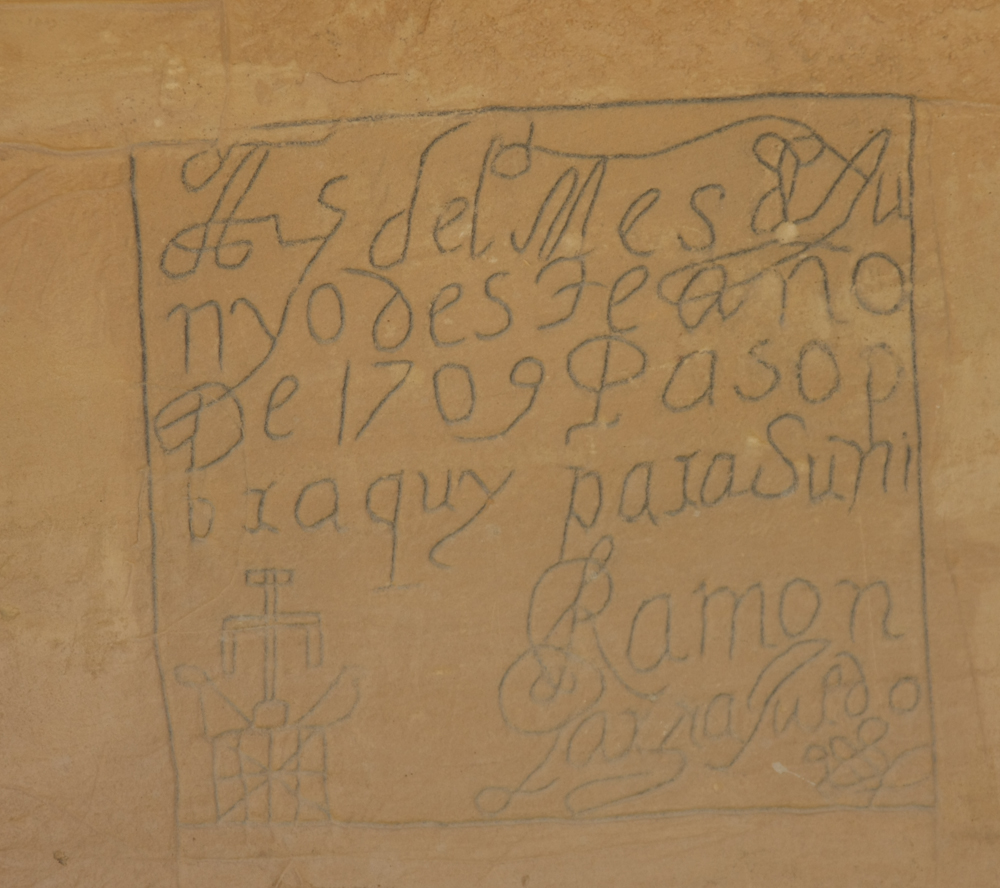 A 5 del Mes d Ju
nyo deste año
De 1709 Paso p
or aquy para Suñi
Ramon
Garzia Jurado